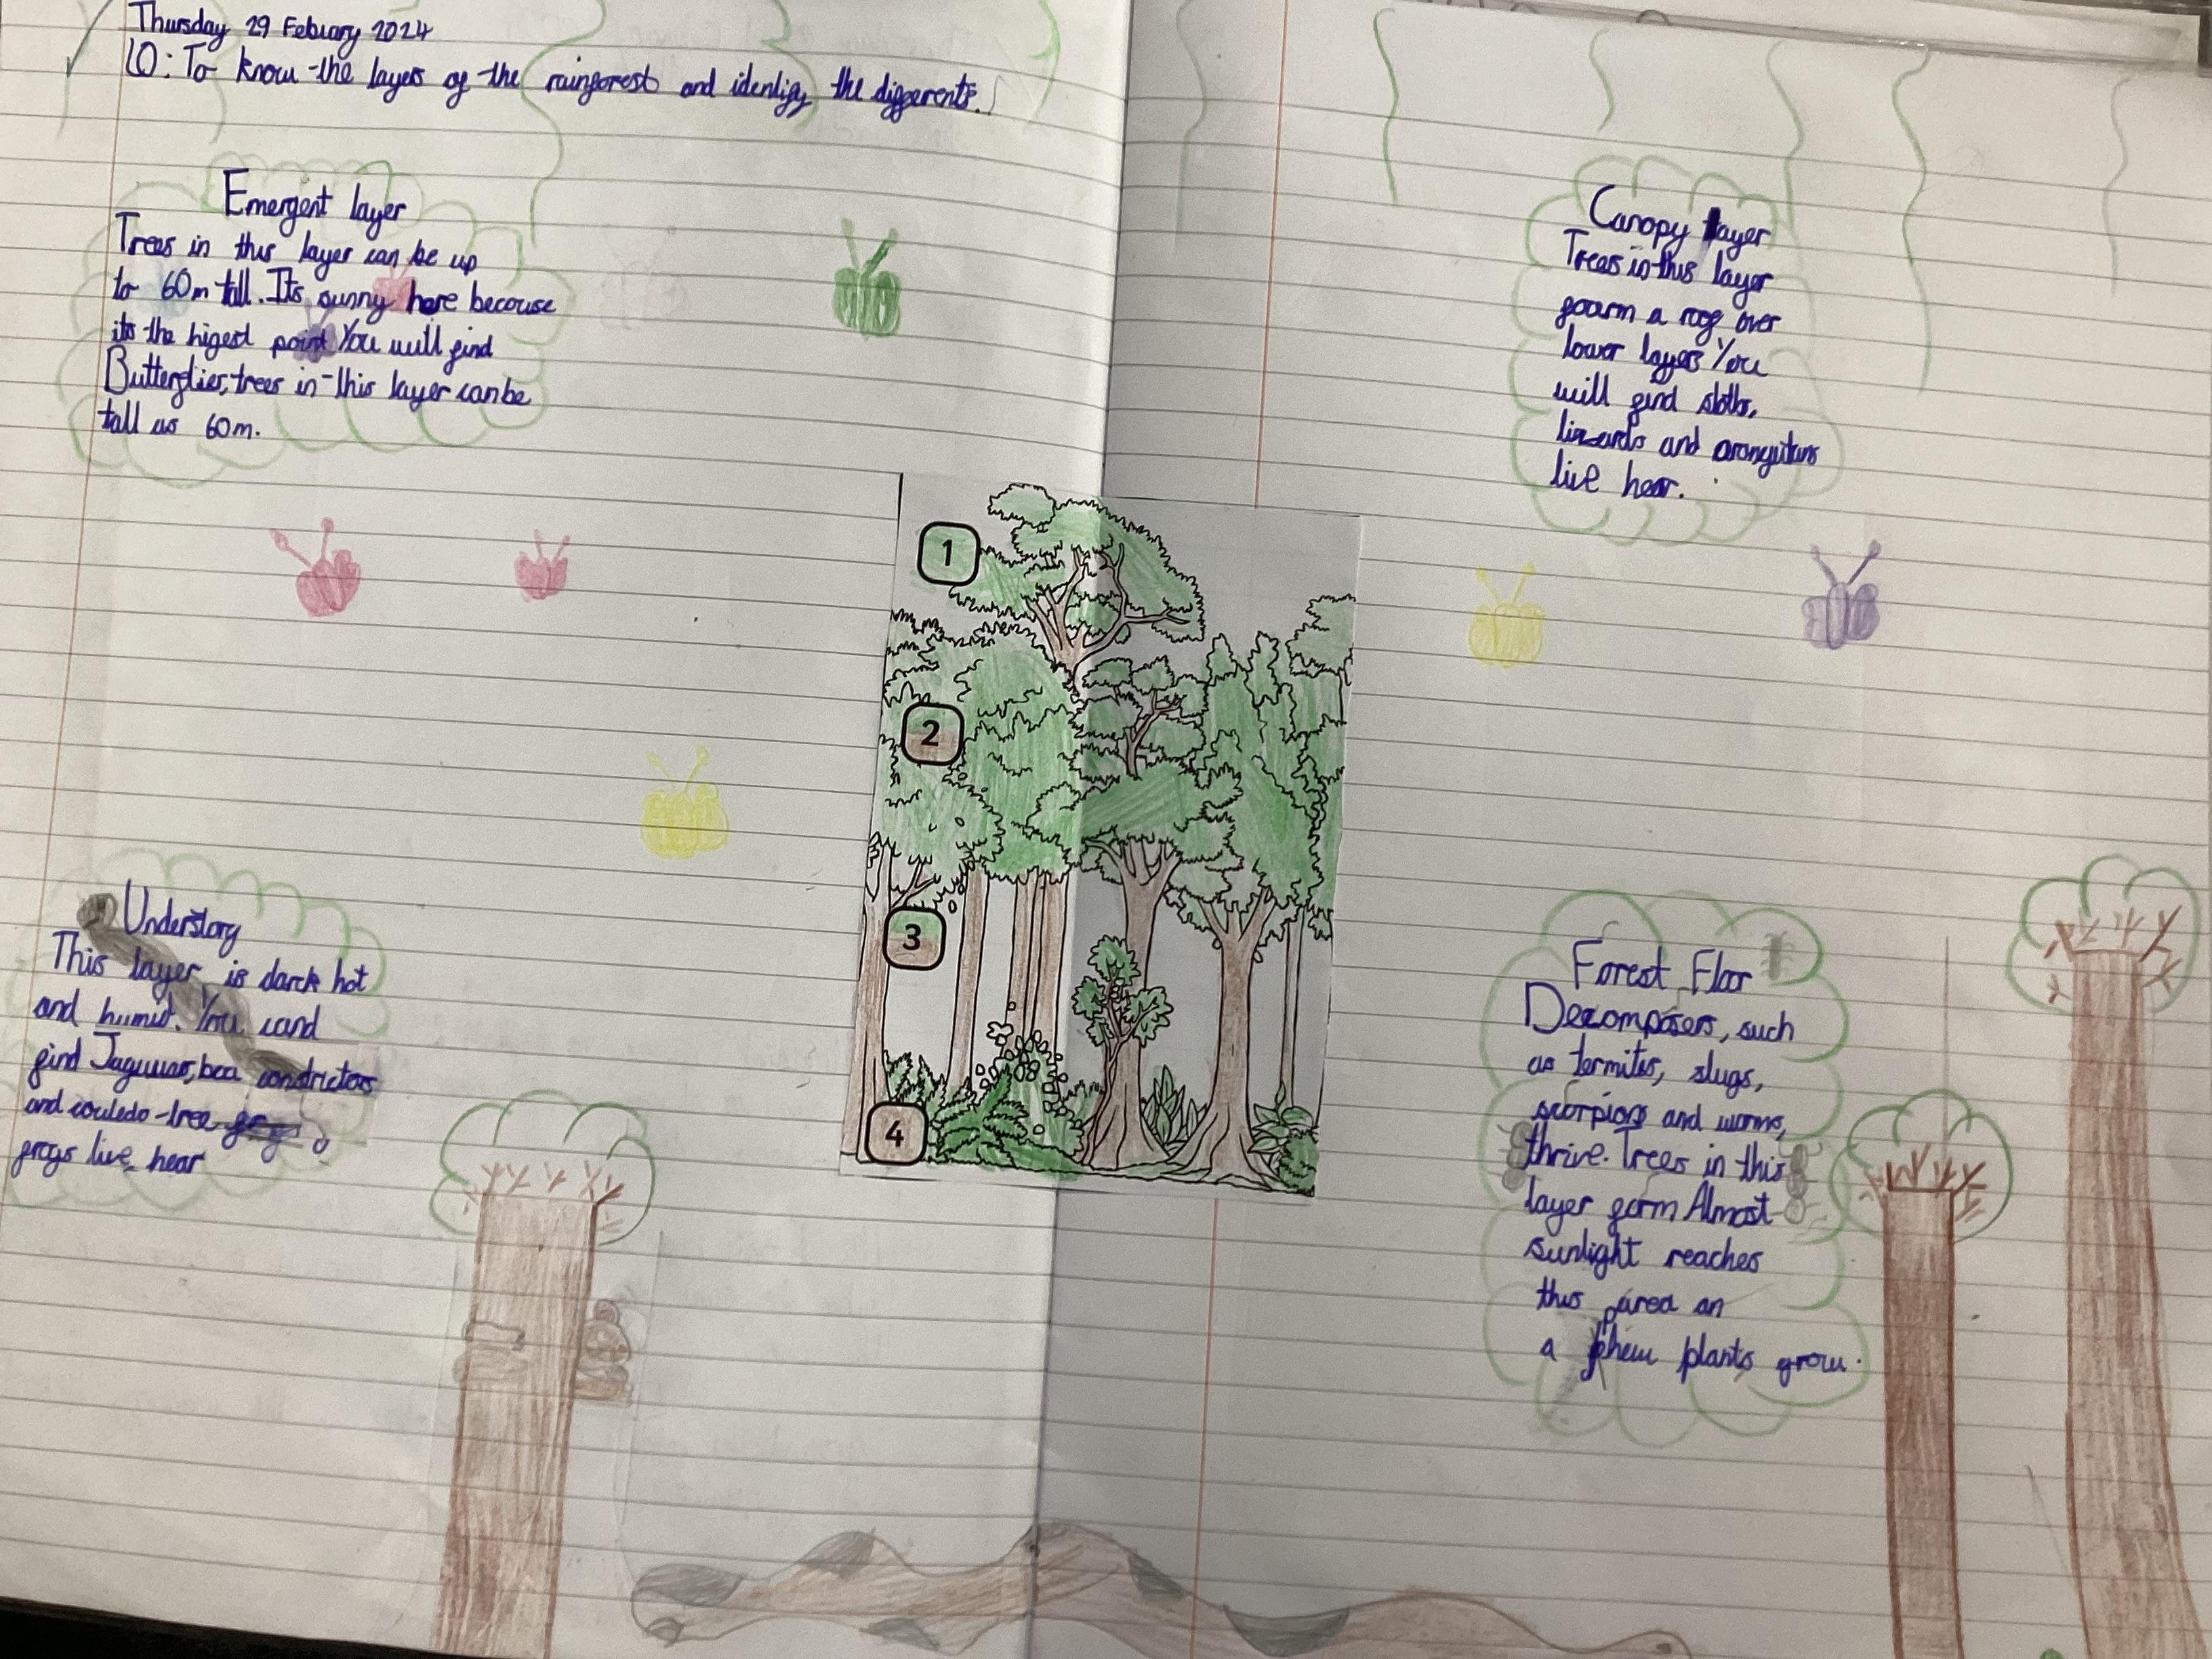 Thursday 29 Febuary 2024
LO: To know the layers of the rainforest and identify the differents.
Emergent layer
Trees in this layer can be up
to 60m tall. Its sunny here becouse
its the higest point You will find
Butterflies, trees in this layer can be
tall as 60m.
Canopy layer
Trees in this layer
foarm a roof over
lower layers You
will find sloths,
lizards and orangutans
live hear.
1
2
3
4
Understory
This layer is darck hot
and humid. You cand
find Jaguuas, boa constrictors
and tree
frogs live hear
Forest Floor
Decomposers, such
as termites, slugs,
scorpions and worms,
thrive. Trees in this
layer form Almost
sunlight reaches
this area an
a phew plants grow.